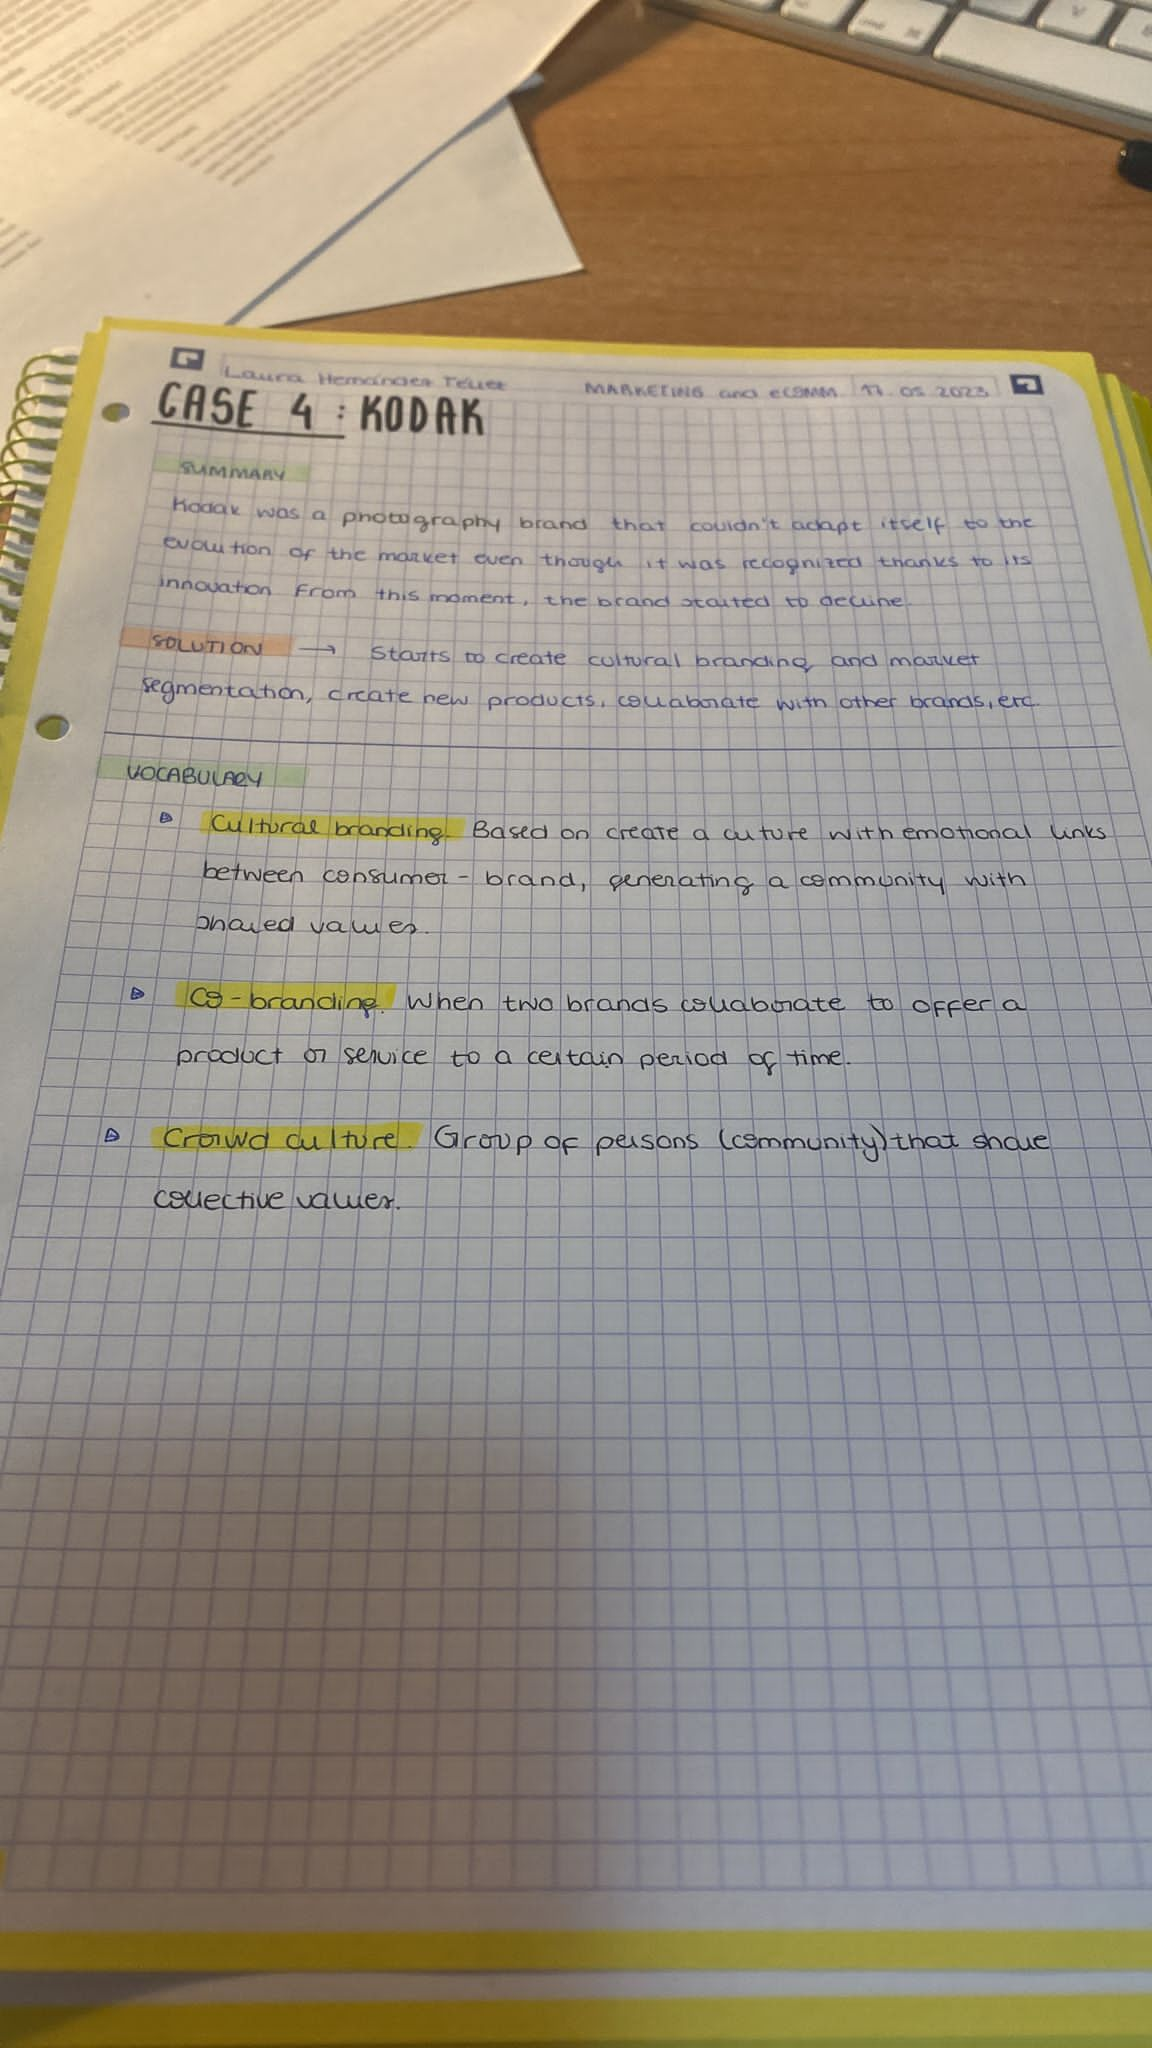 Laura Hernández Téllez MARKETING and eCOMM 17.05.2023
CASE 4: KODAK
SUMMARY
Kodak was a photography brand that couldn't adapt itself to the
evolution of the market even though it was recognized thanks to its
innovation From this moment, the brand started to decline.
SOLUTION → Starts to create cultural branding and market
segmentation, create new products, collaborate with other brands, etc.
VOCABULARY
Cultural branding. Based on create a culture with emotional links
between consumer - brand, generating a community with
shared values.
Co-branding. When two brands collaborate to offer a
product or service to a certain period of time.
Crowd culture. Group of persons (community) that share
collective values.